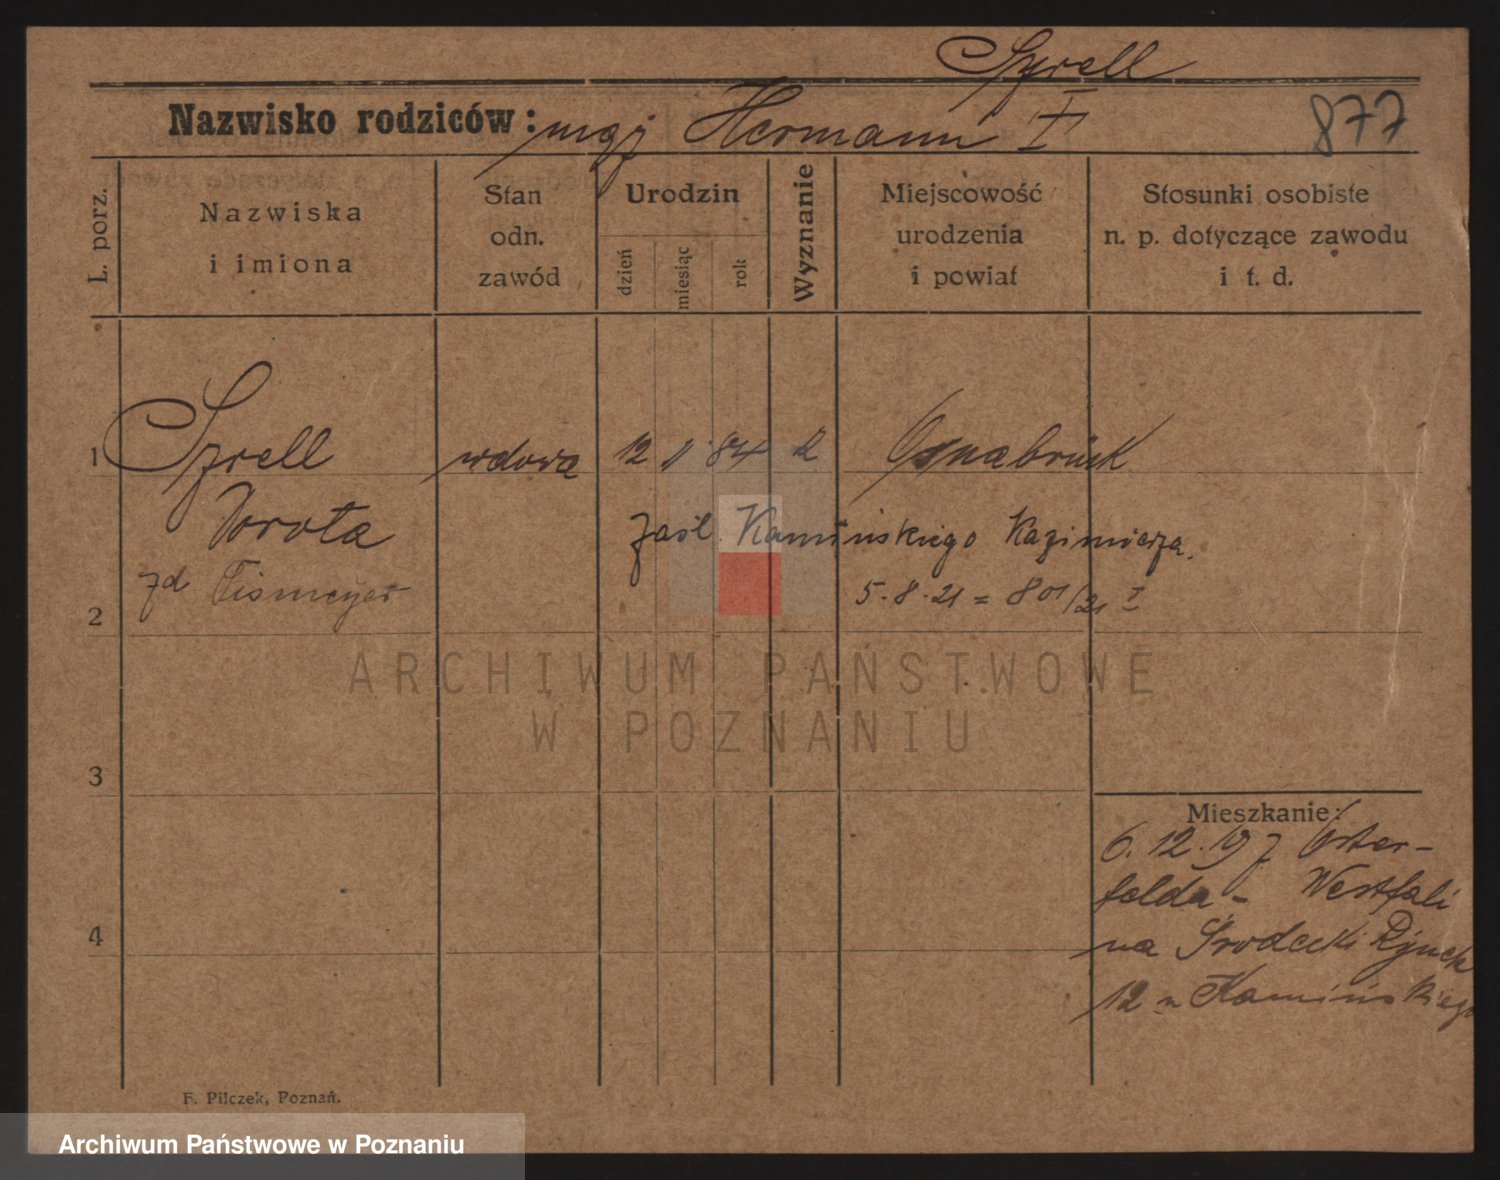 Szrell
Nazwisko rodziców: mąż Hermann I
877
L. porz.
Nazwiska
i imiona
Stan
odn.
zawód
Urodzin
dzień
miesiąc
rok
Wyznanie
Miejscowość
urodzenia
i powiat
Stosunki osobiste
n. p. dotyczące zawodu
i t. d.
1 Szrell wdowa 12 84 Osnabrück
Dorota zaśl. Kamińskiego Kazimierza.
zd Tismeyer 5.8.21 = 801/21 I
2
ARCHIWUM PAŃSTWOWE
W POZNANIU
3
Mieszkanie:
6.12.19 z Oster-
felda - Westfali
4
na Środecki Rynek
12 u Kamińskiego
F. Pilczek, Poznań.
Archiwum Państwowe w Poznaniu